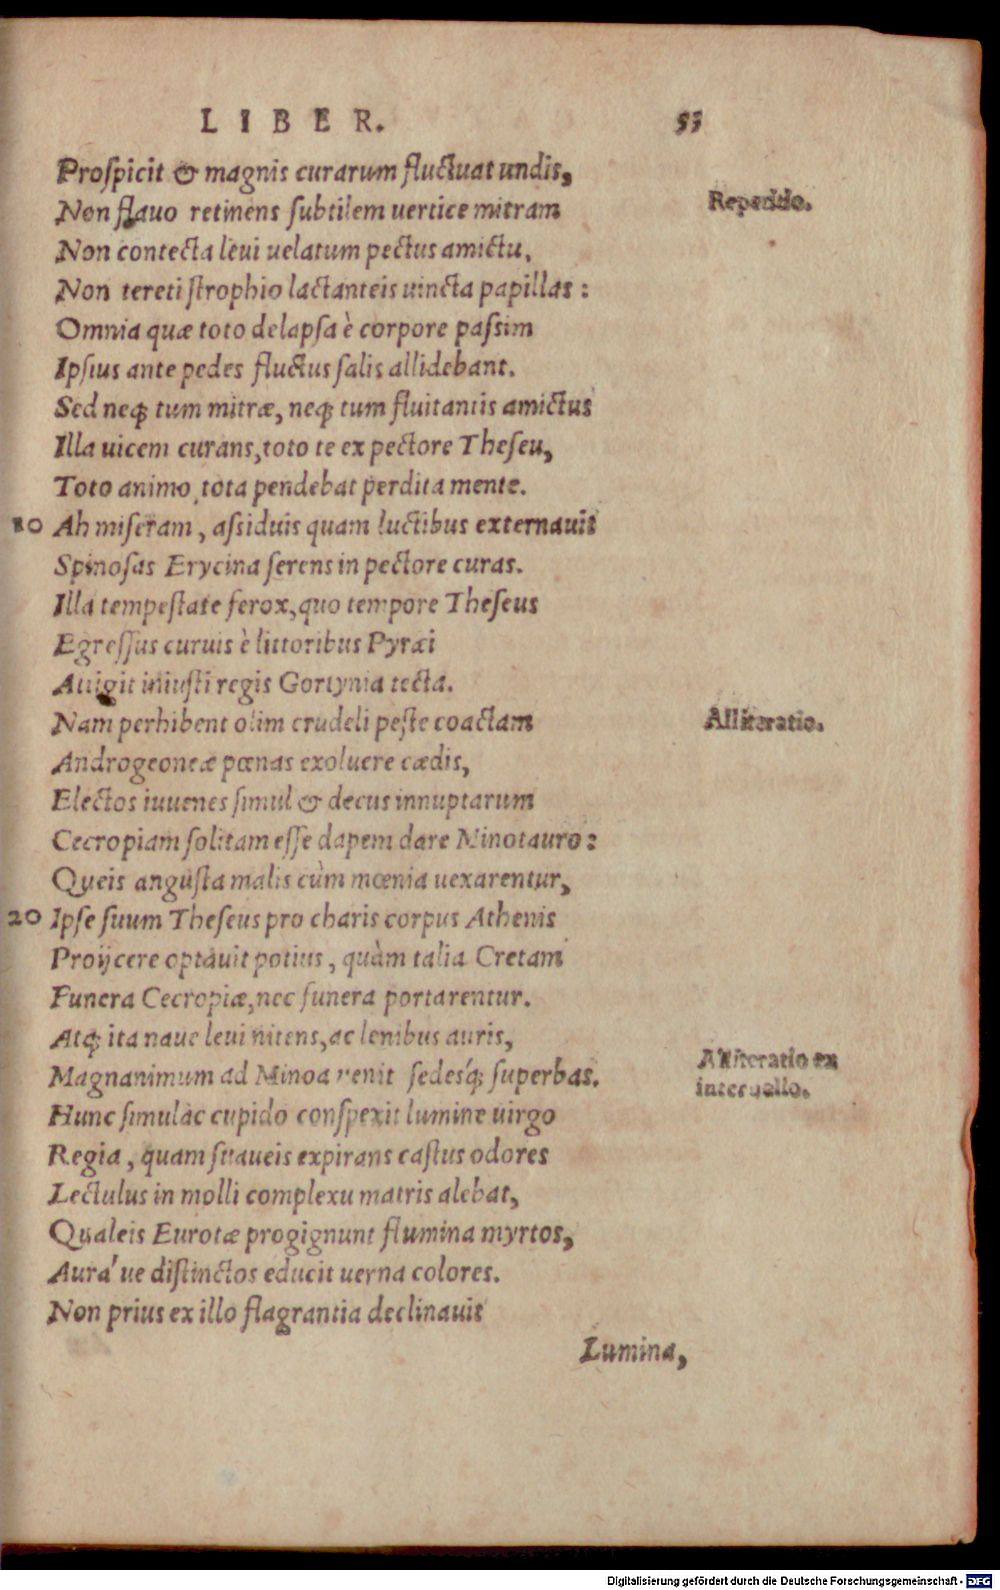 LIBER. 53
Proſpicit & magnis curarum fluctuat undis,
Non flauo retinens ſubtilem uertice mitram
Repetitio.
Non contecta leui uelatum pectus amictu,
Non tereti ſtrophio lactanteis uincta papillas:
Omnia quæ toto delapſa è corpore paſsim
Ipſius ante pedes fluctus ſalis allidebant.
Sed neq; tum mitræ, neq; tum fluitantis amictus
Illa uicem curans, toto te ex pectore Theſeu,
Toto animo, tota pendebat perdita mente.
10 Ah miſeram, aſsiduis quam luctibus externauit
Spinoſas Erycina ſerens in pectore curas.
Illa tempeſtate ferox, quo tempore Theſeus
Egreſſus curuis è littoribus Pyræi
Attigit iniuſti regis Gortynia tecta.
Nam perhibent olim crudeli peſte coactam
Alliteratio.
Androgeoneæ pœnas exoluere cædis,
Electos iuuenes ſimul & decus innuptarum
Cecropiam ſolitam eſſe dapem dare Minotauro:
Queis anguſta malis cùm mœnia uexarentur,
20 Ipſe ſuum Theſeus pro charis corpus Athenis
Proijcere optauit potius, quàm talia Cretam
Funera Cecropiæ, nec funera portarentur.
Atq; ita naue leui nitens, ac lenibus auris,
Magnanimum ad Minoa venit ſedesq́; ſuperbas.
Alliteratio ex
interuallo.
Hunc ſimulac cupido conſpexit lumine uirgo
Regia, quam ſuaueis expirans caſtus odores
Lectulus in molli complexu matris alebat,
Qualeis Eurotæ progignunt flumina myrtos,
Aura'ue diſtinctos educit uerna colores.
Non prius ex illo flagrantia declinauit
Lumina,
Digitalisierung gefördert durch die Deutsche Forschungsgemeinschaft - DFG